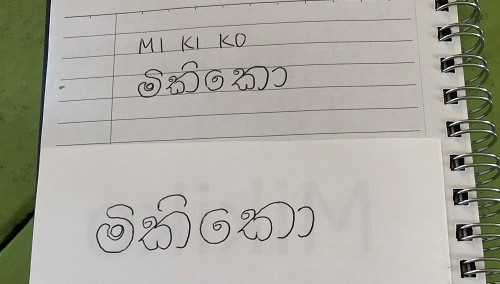 MI KI KO
මිකිකො
මිකිකො